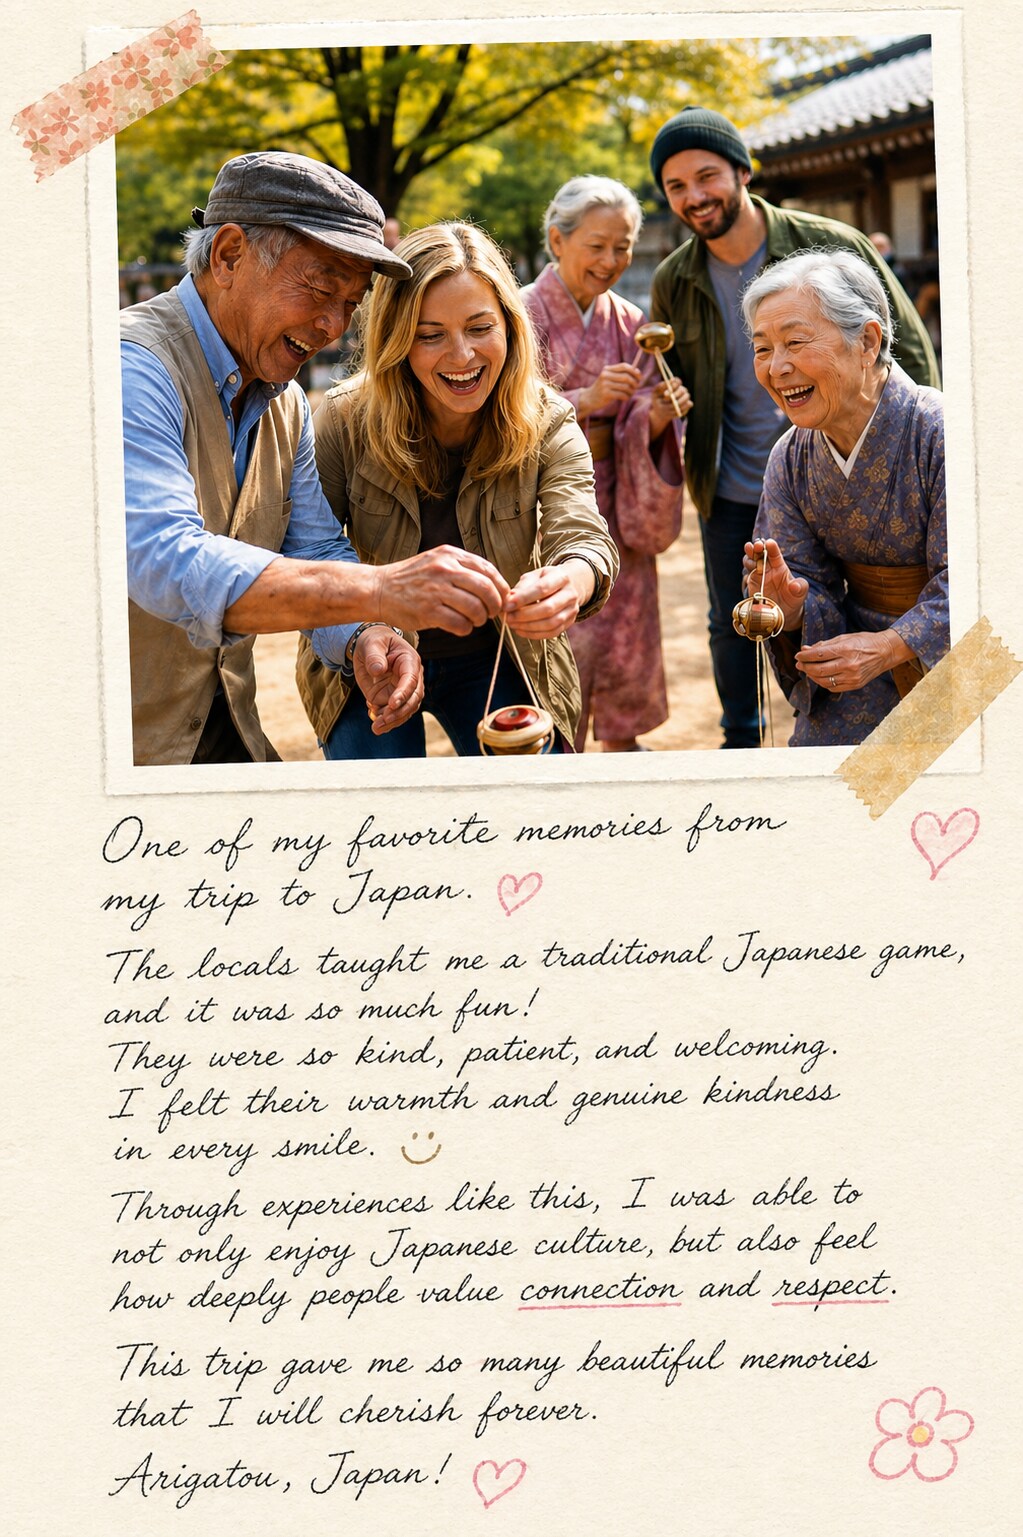 One of my favorite memories from
my trip to Japan.
The locals taught me a traditional Japanese game,
and it was so much fun!
They were so kind, patient, and welcoming.
I felt their warmth and genuine kindness
in every smile.
Through experiences like this, I was able to
not only enjoy Japanese culture, but also feel
how deeply people value connection and respect.
This trip gave me so many beautiful memories
that I will cherish forever.
Arigatou, Japan!